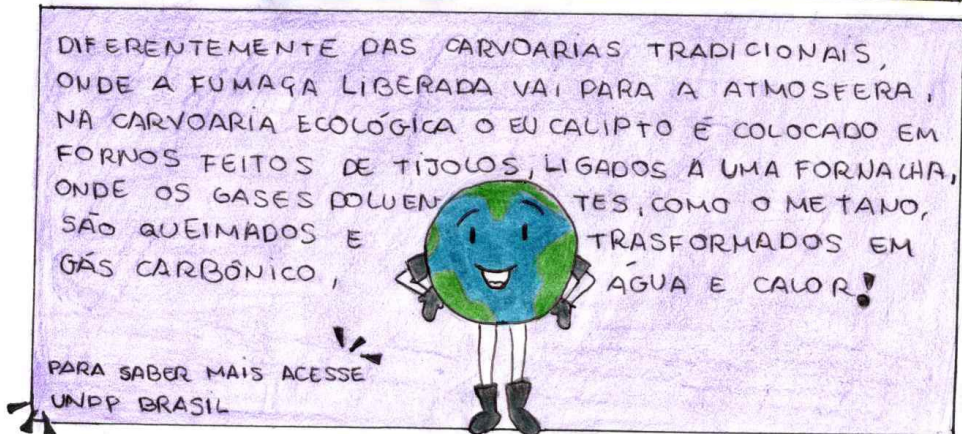 DIFERENTEMENTE DAS CARVOARIAS TRADICIONAIS,
ONDE A FUMAÇA LIBERADA VAI PARA A ATMOSFERA,
NA CARVOARIA ECOLÓGICA O EUCALIPTO É COLOCADO EM
FORNOS FEITOS DE TIJOLOS, LIGADOS A UMA FORNALHA,
ONDE OS GASES POLUENTES, COMO O METANO,
SÃO QUEIMADOS E TRASFORMADOS EM
GÁS CARBÔNICO, ÁGUA E CALOR!
PARA SABER MAIS ACESSE
UNDP BRASIL